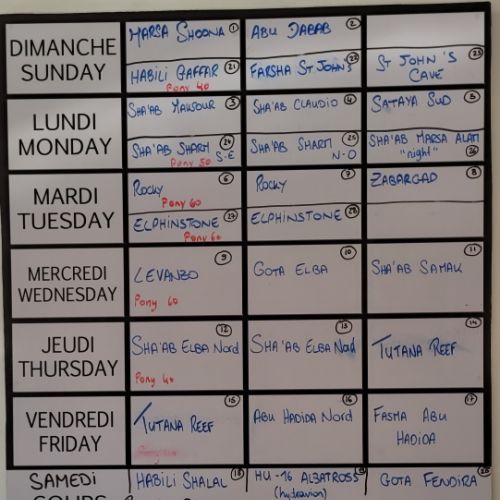 DIMANCHE SUNDAY
MARSA SHOONA 1
ABU DABAB 2
HABILI GAFFAR 21
Pony 40
FARSHA ST JOHN'S 22
ST JOHN'S CAVE 23
LUNDI MONDAY
SHA'AB MANSOUR 3
SHA'AB CLAUDIO 4
SATAYA SUD 5
SHA'AB SHARM S-E 24
Pony 50
SHA'AB SHARM N-O 25
SHA'AB MARSA ALAM "night" 26
MARDI TUESDAY
ROCKY 6
Pony 60
ROCKY 7
ZABARGAD 8
ELPHINSTONE 27
Pony 60
ELPHINSTONE 28
MERCREDI WEDNESDAY
LEVANZO 9
Pony 60
GOTA ELBA 10
SHA'AB SAMAK 11
JEUDI THURSDAY
SHA'AB ELBA Nord 12
Pony 40
SHA'AB ELBA Nord 13
TUTANA REEF 14
VENDREDI FRIDAY
TUTANA REEF 15
ABU HADIDA Nord 16
FASMA ABU HADIDA 17
SAMEDI
HABILI SHALAL 18
HU-16 ALBATROSS 19
(hydravion)
GOTA FENDIRA 20